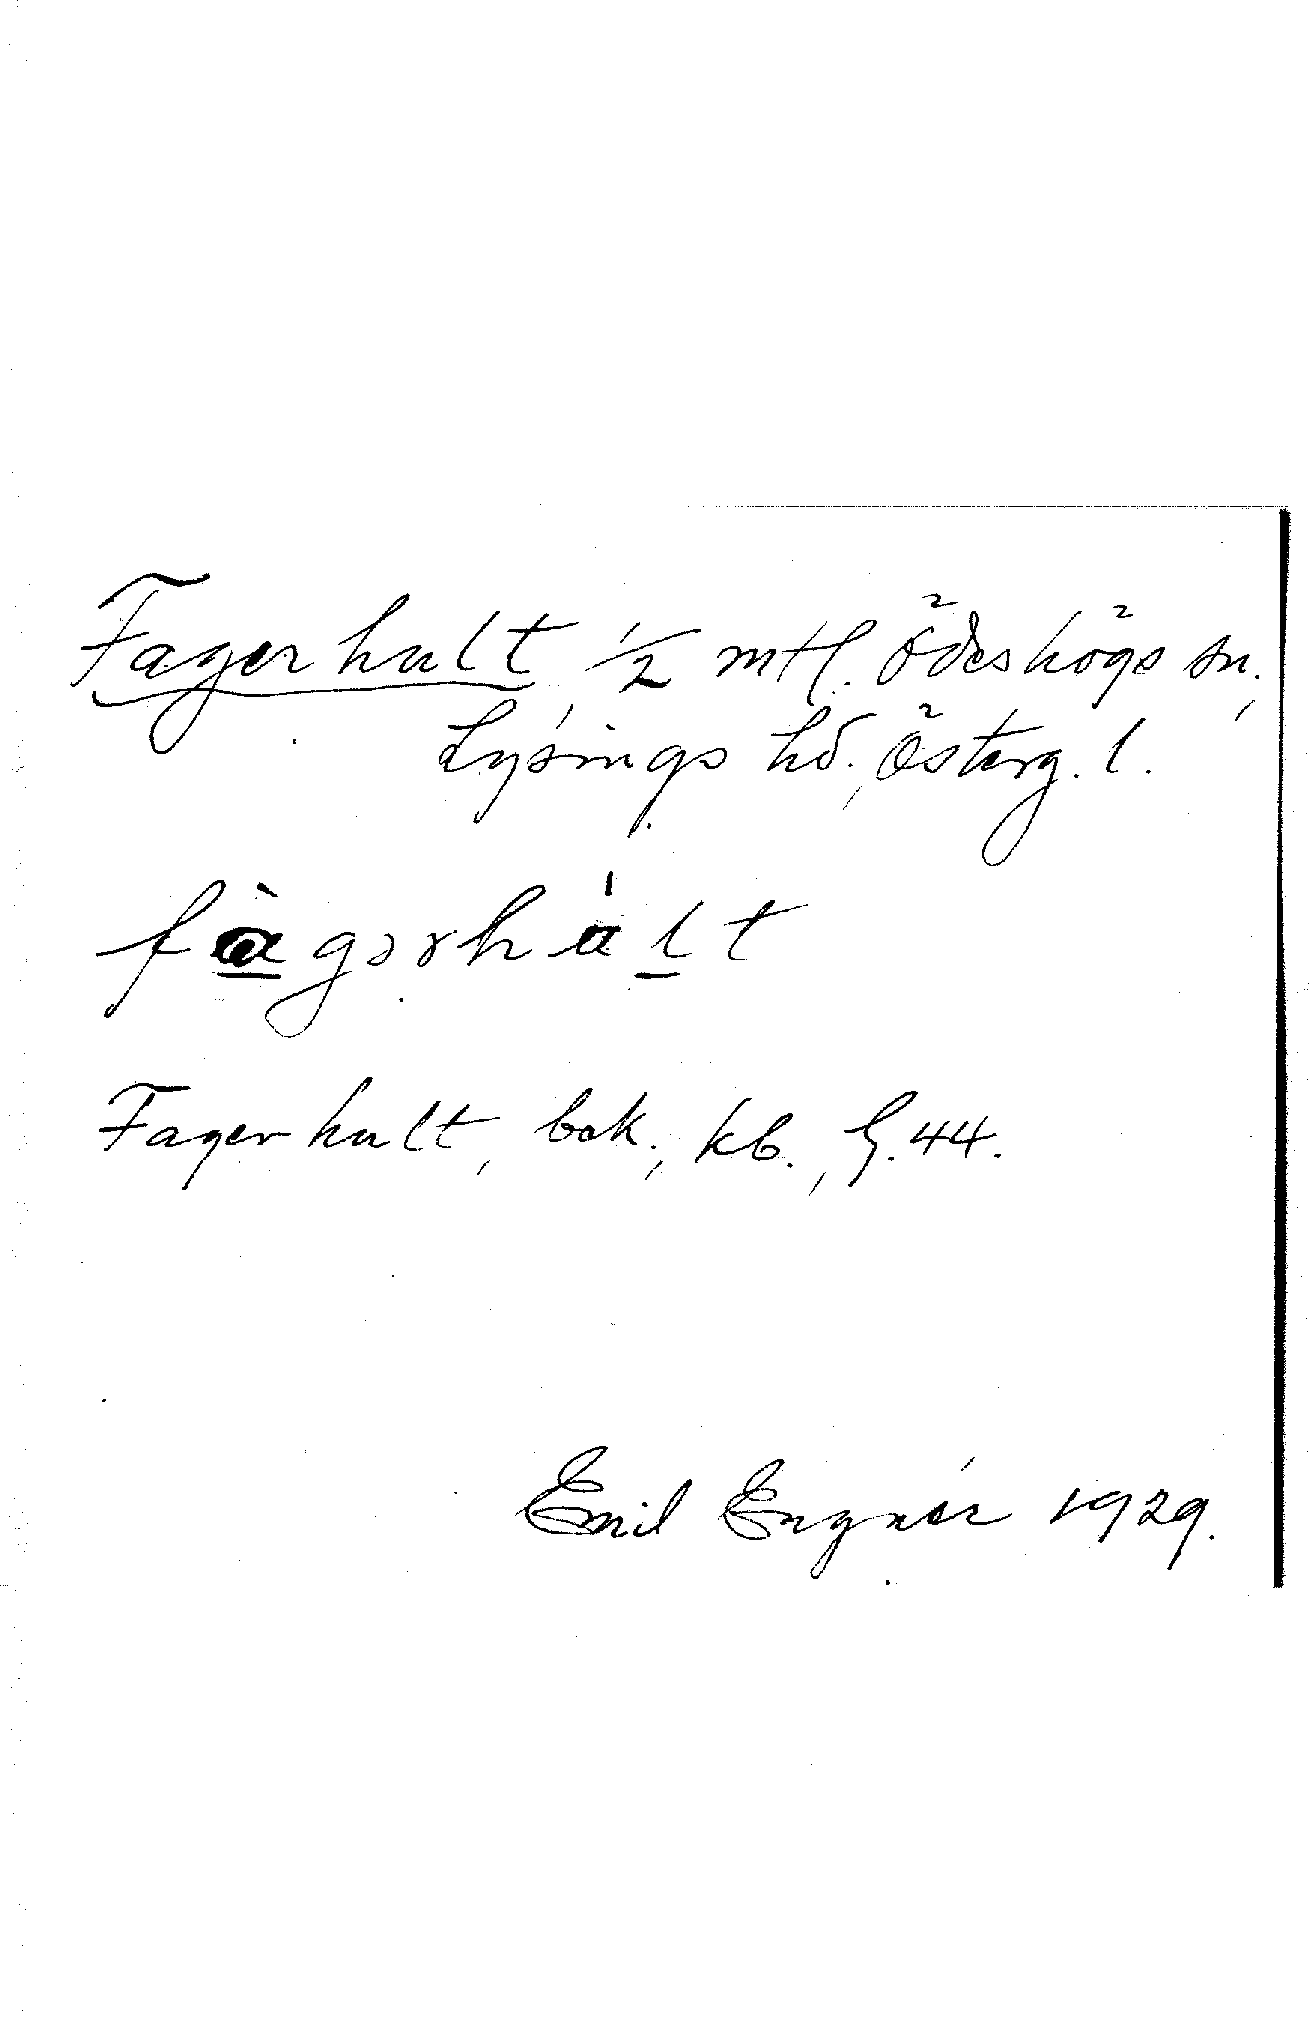 Fagerhult ½ mtl. Ödeshögs sn.,
Lysings hd., Österg. l.
fàgərhált
Fagerhult, bok., kb., G. 44.
Emil Engnér 1929.